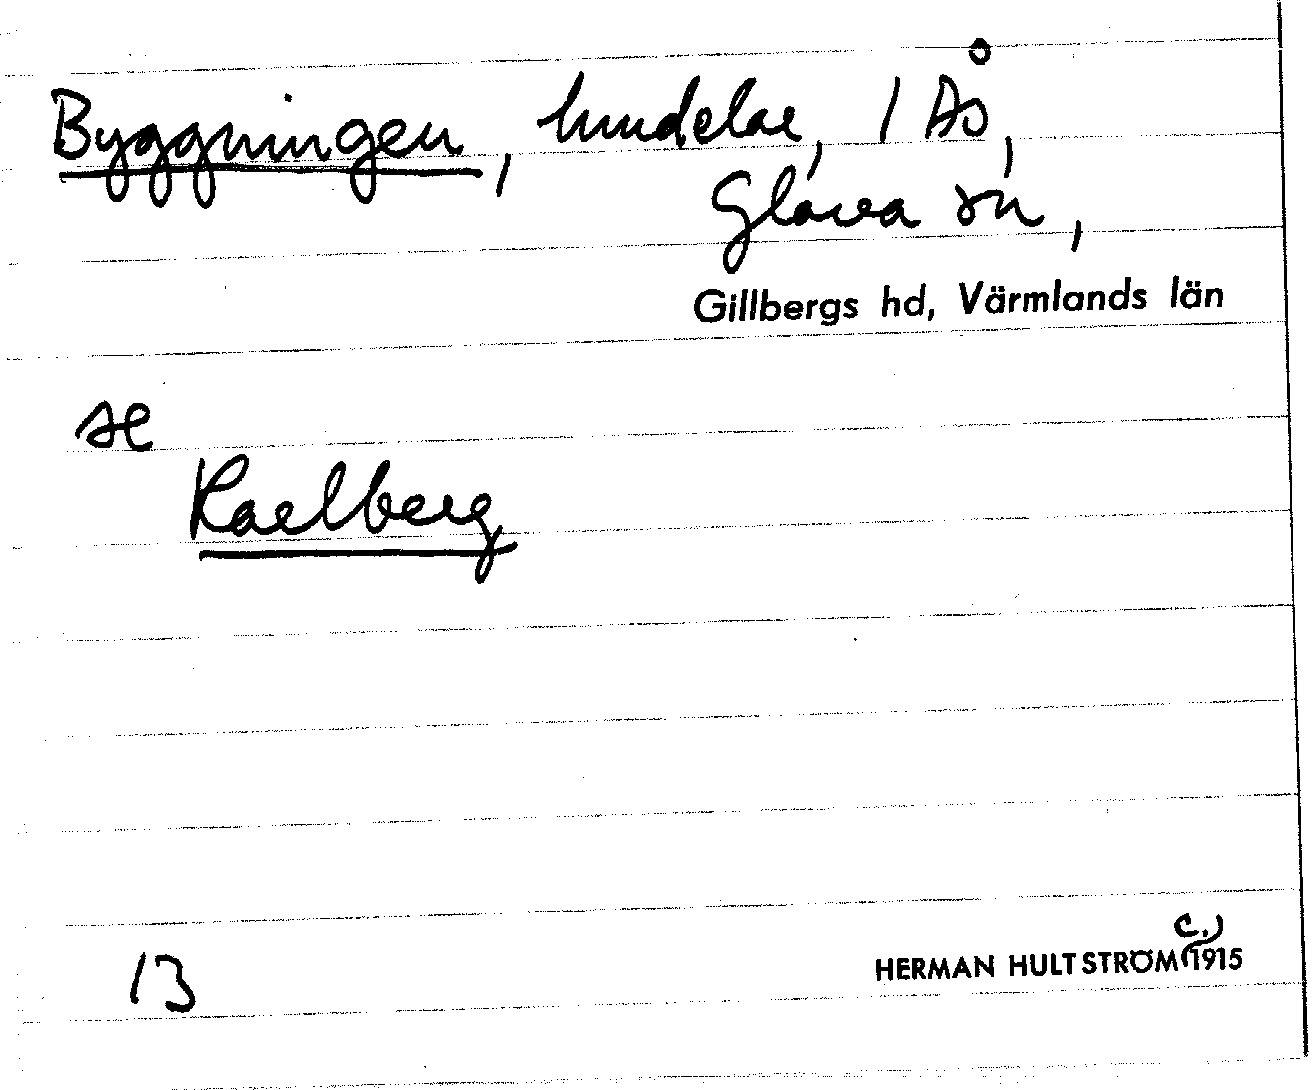 Byggningen, hmdelar, 1 Ås,
Glava sn,
Gillbergs hd, Värmlands län
se
Karlberg
13
HERMAN HULTSTRÖM (c.) 1915